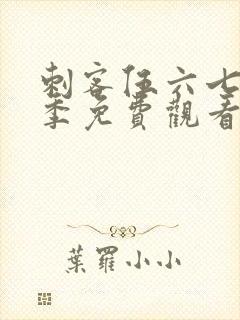 刺客伍六七
季免費觀看
葉羅小小